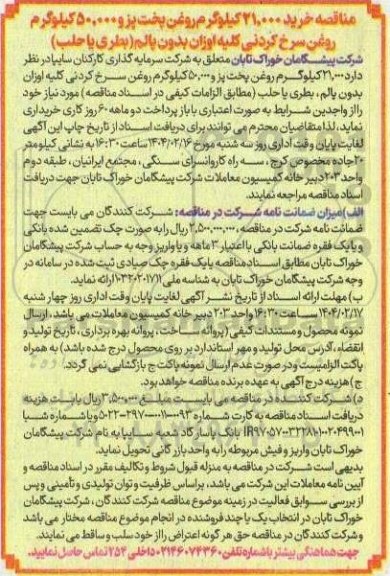 مناقصه خرید ۲۱،۰۰۰ کیلوگرم روغن پخت پز و ۵۰،۰۰۰ کیلوگرم
روغن سرخ کردنی کلیه اوزان بدون پالم (بطری یا حلب)
شرکت پیشگامان خوراک تابان متعلق به شرکت سرمایه گذاری کارکنان سایپا در نظر
دارد ۲۱،۰۰۰ کیلوگرم روغن پخت پز و ۵۰،۰۰۰ کیلوگرم روغن سرخ کردنی کلیه اوزان
بدون پالم ، بطری یا حلب (مطابق الزامات کیفی در اسناد مناقصه) مورد نیاز خود
را از واجدین شرایط به صورت اعتباری با باز پرداخت دو ماهه ۶۰ روز کاری خریداری
نماید، لذا متقاضیان محترم می توانند برای دریافت اسناد از تاریخ چاپ این آگهی
لغایت پایان وقت اداری روز سه شنبه مورخ ۱۴۰۴/۰۲/۱۶ ساعت ۱۶:۳۰ به نشانی کیلومتر
۲۰ جاده مخصوص کرج ، سه راه کاروانسرای سنگی ، مجتمع ایرانیان ، طبقه دوم
واحد ۲۰۳ دبیر خانه کمیسیون معاملات شرکت پیشگامان خوراک تابان جهت دریافت
اسناد مناقصه مراجعه نمایند.
الف) میزان ضمانت نامه شرکت در مناقصه: شرکت کنندگان می بایست جهت
ضمانت نامه شرکت در مناقصه ، ۳،۵۰۰،۰۰۰،۰۰۰ ریال را به صورت چک تضمین شده بانکی
و یا یک فقره ضمانت بانکی با اعتبار ۳ ماهه و یا واریز وجه به حساب شرکت پیشگامان
خوراک تابان مطابق اسناد مناقصه یا یک فقره چک صیادی ثبت شده در سامانه در
وجه شرکت پیشگامان خوراک تابان به شناسه ملی ۱۰۳۲۰۲۰۱۷۱۱ ارائه نماید.
ب) مهلت ارائه اسناد از تاریخ نشر آگهی لغایت پایان وقت اداری روز چهار شنبه
۱۴۰۴/۰۲/۱۷ ساعت ۱۶:۳۰ واحد ۲۰۳ دبیر خانه کمیسیون معاملات می باشد، ارسال
نمونه محصول و مستندات کیفی (پروانه ساخت ، پروانه بهره برداری ، تاریخ تولید و
انقضاء ، آدرس محل تولید و مهر استاندارد بر روی محصول درج شده باشد) به همراه
پاکت الزامیست و در صورت عدم ارسال نمونه پاکت ج بازگشایی نمی گردد.
ج) هزینه درج آگهی به عهده برنده مناقصه خواهد بود.
د) شرکت کننده در مناقصه می بایست مبلغ ۳،۵۰۰،۰۰۰ ریال بابت هزینه
دریافت اسناد مناقصه به کارت شماره و یا شماره شبا
بانک پاسارگاد شعبه سایپا به نام شرکت پیشگامان
خوراک تابان واریز و فیش مربوطه را به واحد بازرگانی تحویل نماید.
بدیهی است شرکت در مناقصه به منزله قبول شروط و تکالیف مقرر در اسناد مناقصه و
آیین نامه معاملات این شرکت می باشد، براساس ظرفیت و توان تولیدی و تأمینی و پس
از بررسی سوابق فعالیت در زمینه موضوع مناقصه شرکت کنندگان ، شرکت پیشگامان
خوراک تابان در انتخاب یک یا چند فروشنده در انجام موضوع مناقصه مختار می باشد
و شرکت کنندگان در مناقصه حق هر گونه اعتراض را از خود سلب و ساقط می نمایند.
جهت هماهنگی بیشتر با شماره تلفن ۰۲۱۴۶۰۷۴۳۶۰ داخلی ۲۵۴ تماس حاصل نمایید.